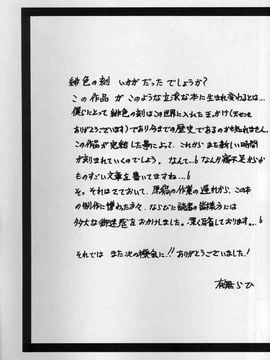 緋色の刻 いかがだったでしょうか？
この作品がこのような立派な本に生まれ変わるとは…
僕らにとって緋色の刻はこの世界に入れたきっかけ(天せつた
ありがとうございます)であり今までの歴史であるのかも知れません
この作品が完結した事によって、これからまた新しい時間
が刻まれていくのでしょう。なんて…6 なんか寝不足からか
ものすごい文章を書いてますね…6
そ。それはさておいて、原稿の作業の遅れから、この本
の制作に携わった方々、ならびに読者の皆様方には
多大な御迷惑をおかけしました。深く反省しております。…6
それでは また次の機会に!! ありがとうございました!